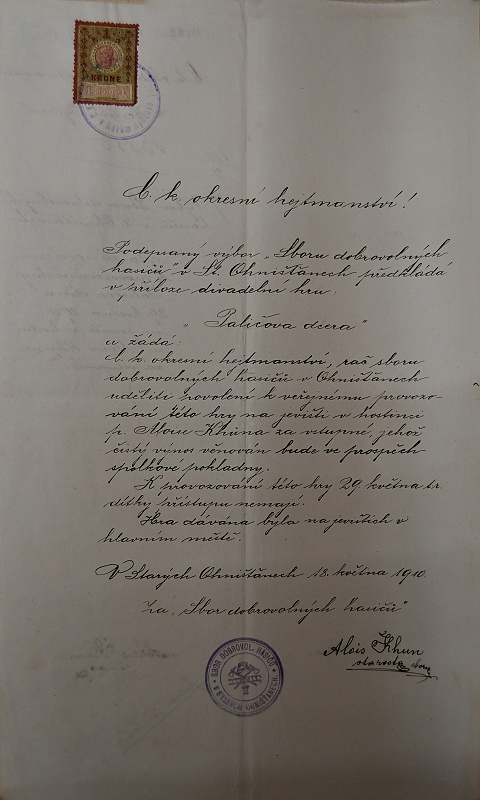 1
KRONE
C. k. okresní hejtmanství!
Podepsaný výbor „Sboru dobrovolných
hasičů" v St. Ohništanech předkládá
v příloze divadelní hru:
„Paličova dcera"
a žádá:
C. k. okresní hejtmanství, rač sboru
dobrovolných hasičů v Ohništanech
uděliti povolení k veřejnému provozo-
vání této hry na jevišti v hostinci
p. Aloise Khuna za vstupné, jehož
čistý výnos věnován bude ve prospěch
spolkové pokladny.
K provozování této hry 29. května t.r.
dítky přístupu nemají.
Hra dávána byla na jevištích v
hlavním městě.
V Starých Ohništanech 18. května 1910.
Za „Sbor dobrovolných hasičů"
Alois Khun
starosta
SBOR DOBROVOL. HASIČŮ
V STARÝCH OHNIŠŤANECH.